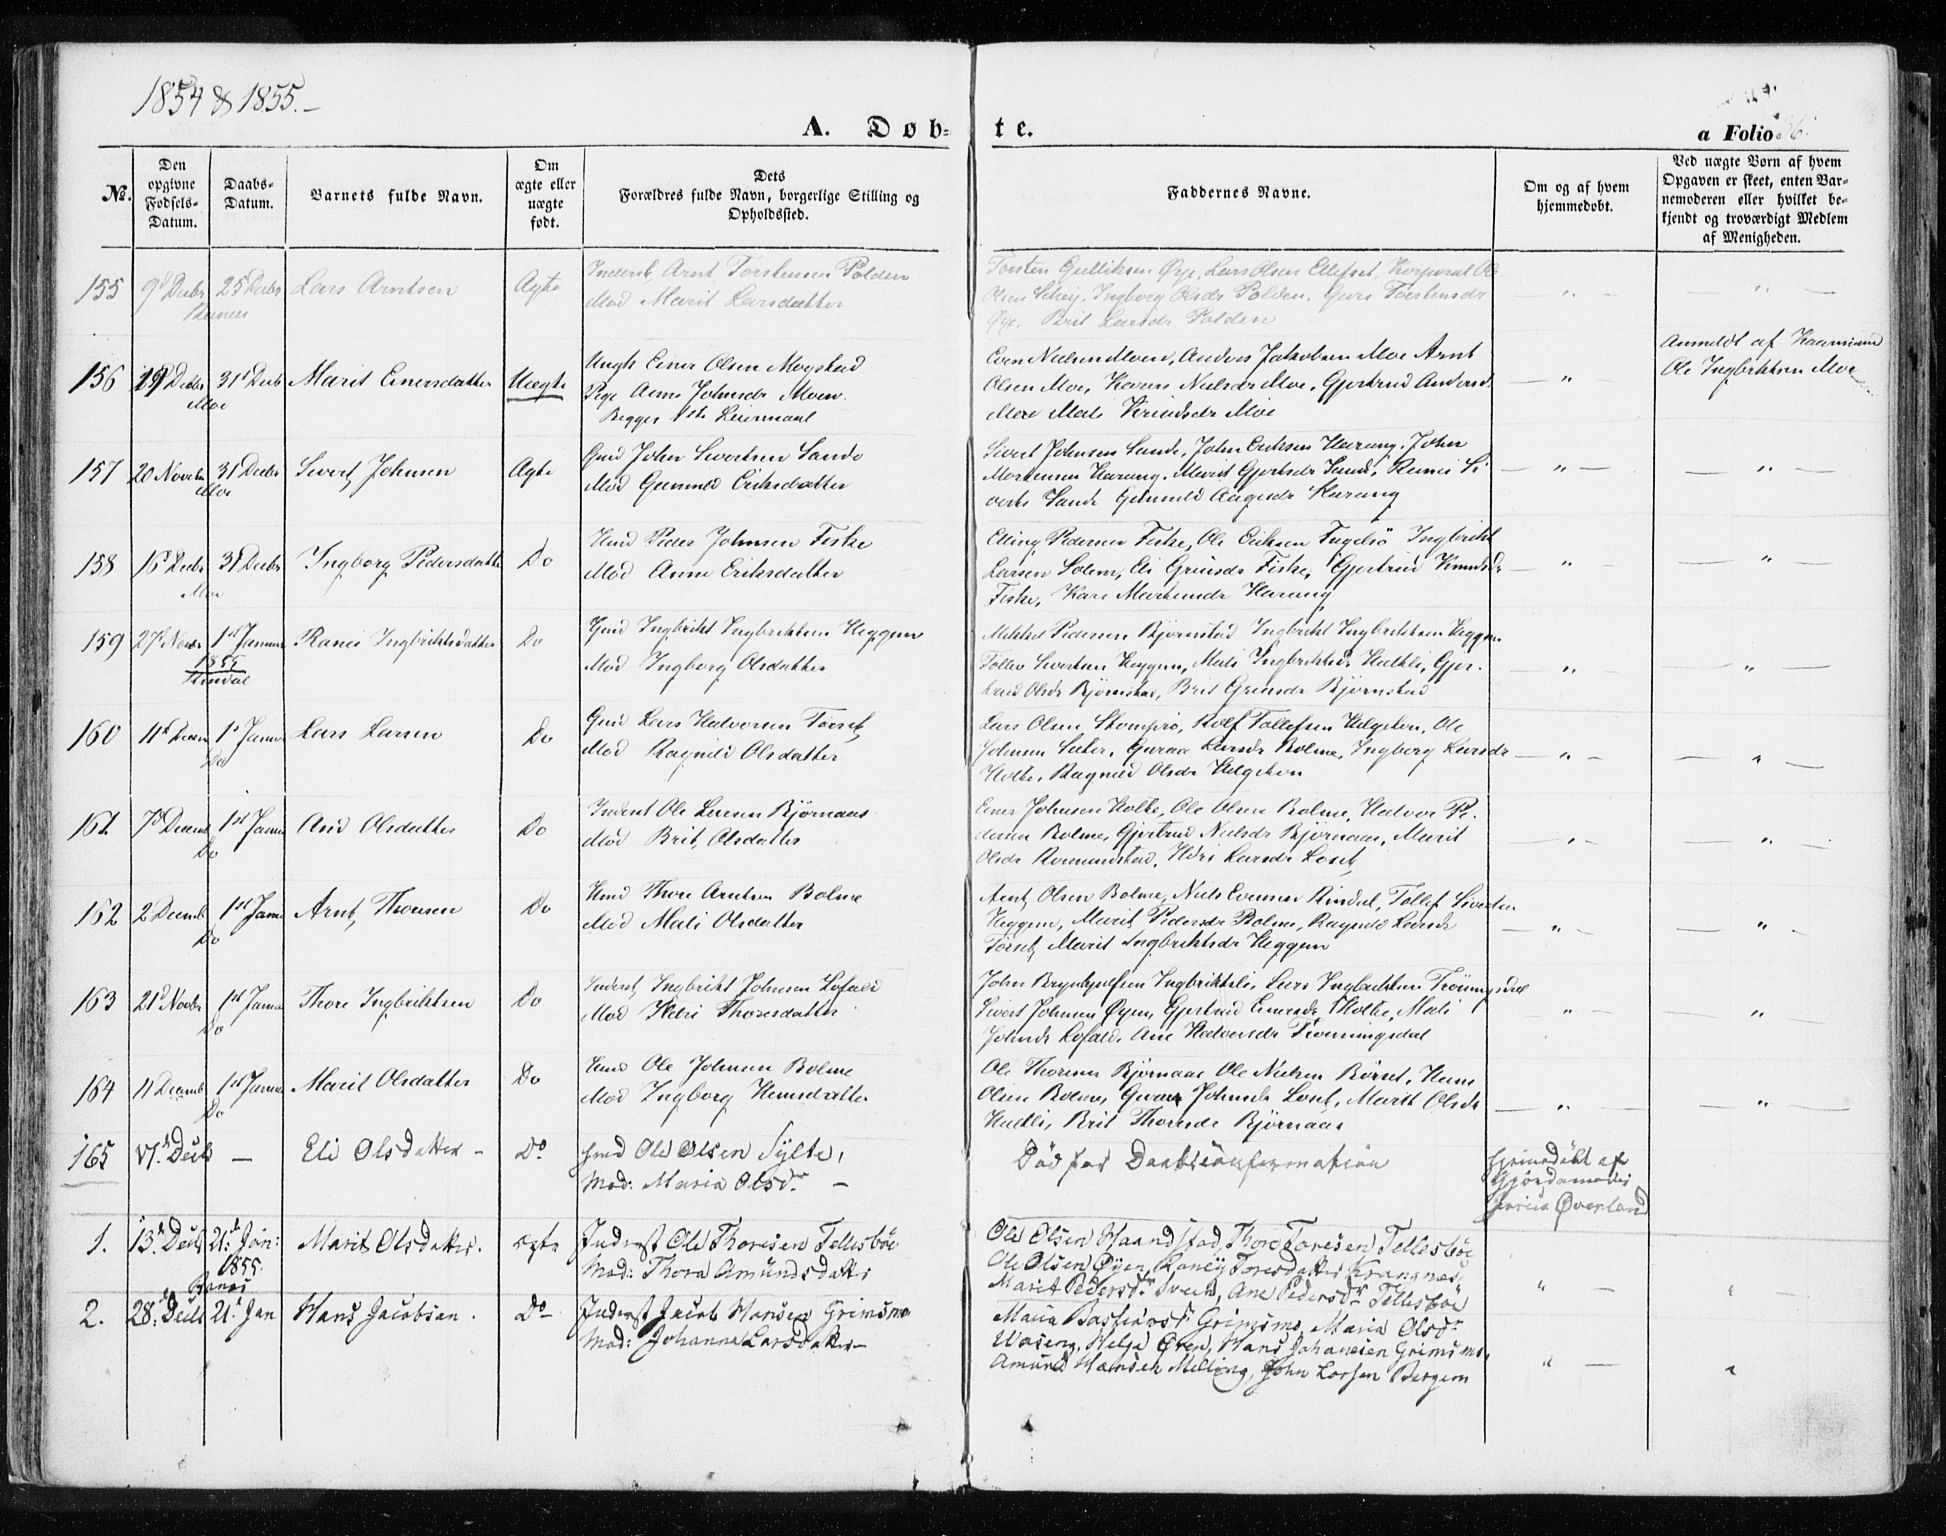 1854 & 1855.
A. Døb-te.
a Folio
№.
Den opgivne Fødsels-Datum.
Daabs-Datum.
Barnets fulde Navn.
Om ægte eller uægte født.
Dets Forældres fulde Navn, borgerlige Stilling og Opholdssted.
Faddernes Navne.
Om og af hvem hjemmedøbt.
Ved uægte Børn af hvem Opgaven er skeet, enten Barnemoderen eller hvilket bekjendt og troværdigt Medlem af Menigheden.
155 9d Decbr 25 Decbr Lars Arntsen Ægte
Inderst Arnt Torstensen Polden
Mod Marit Larsdatter
Torsten Gulliksen Øye, Lars Olsen Ellefset, Korporal Ole
Olsen, Ingborg Olsdr Polden, Torstensdr
Øye, Brit Larsdr Polden
156 19 Decbr 31 Decb Marit Einersdatter Uægte
Moe
Ungk Einer Olsen Mogstad
Pige Anne Johnsdr Moen
Begges 1ste Leiermaal
Even Nielsen Moen, Anders Jakobsen Moe Arnt
Olsen Moe, Karen Nielsdr Moe, Gjertrud Andersd.
Moe Mali Moe
Anmeldt af
Ole Ingbriktsen Moe
157 20 Novbr 31 Decbr Sivert Johnsen Ægte
Moe
Gmd John Sivertsen Sande
Mod Gunild Eriksdatter
Sivert Johnsen Sande, John Eriksen Harang, John
Mortensen Harang, Marit Gjertsdr Sande, Ranei Si
vertsdr Sande Gunild Aagesdr Harang
158 16 Decbr 31 Decbr Ingborg Pedersdatter Do
Moe
Huusmd Peder Johnsen Fiske
Mod Anne Eriksdatter
Elling Pedersen Fiske, Ole Eriksen Fugelsø Ingbrikt
Larsen Solem, Eli Fiske, Gjertrud Knudsdr
Fiske, Kari Harang
159 27 Novbr 1st Januar Ranei Ingbriktsdatter Do
1855
Rindal
Gmd Ingbrikt Ingbriktsen Heggem
Mod Ingborg Olsdatter
Mikkel Pedersen Bjørnstad Ingbrikt Ingbriktsen Heggem
Tollev Sivertsen Heggem, Mali Ingbriktsdr Haltli, Gjer-
trud Olsdr Bjørnstad, Brit Bjørnstad
160 11 Decem 1st Januar Lars Larsen Do
Do
Gmd Lars Halvorsen Tørset
Mod Ragnild Olsdatter
Lars Olsen, Rolf Tollefsen Helgeton, Ole
Johnsen Sæter, Guraa Larsdr Bolme, Ingborg Larsdr
Holte, Ragnild Olsdr Helgeton
161 7 Decemb 1st Januar Ane Olsdatter Do
Do
Inderst Ole Larsen Bjørnaas
Mod Brit Olsdatter
Einer Johnsen Holte, Ole Olsen Bolme, Halvor Pe-
dersen Bolme, Gjertrud Nielsdr Bjørnaas, Marit
Olsdr Romundstad, Larsdr Loset
162 2 Decemb 1st Janua Arnt Thoresen Do
Do
Huusmd Thore Arntsen Bolme
Mod Mali Olsdatter
Arnt Olsen Bolme, Niels Evensen Rindal, Tollef Sivertsen
Heggem, Marit Pedersdr Bolme, Ragnild Larsdr
Tørset, Marit Ingbriktsdr Heggem
163 21 Novbr 1st Janua Thore Ingbriktsen Do
Do
Inderst Ingbrikt Johnsen Lofald
Mod Thoresdatter
John Brynhjulsen Ingbriktsli, Lars Ingbriktsen Trønningsdal
Sivert Johnsen Øyen, Gjertrud Einersdr Holte, Mali
Johnsdr Lofald, Ane Halvorsdr Trønningsdal
164 11 Decemb 1st Januar Marit Olsdatter Do
Do
Huusmd Ole Johnsen Bolme
Mod Ingborg Hansdatter
Ole Thoresen Bjørnaas Ole Nielsen Børset, Hans
Olsen Bolme, Guraa Johnsdr Loset, Marit Olsdr
Haltli, Brit Thoresdr Bjørnaas
165 17. Decb — Eli Olsdatter – Do
Hmd Ole Olsen Sylte,
Mod: Maria Olsdr. –
Død før Daabsconfirmation
Hjemmedøbt af
Gjordemoder
Øverland
1. 13. Decb 21. Jan: Marit Olsdatter. ægte
1855.
Ranes
Inderst Ole Thoresen Tellesbøe
Mod: Thora Amundsdatter
Ole Olsen Haandstad, Thore Toresen Tellesbøe
Ole Olsen Øyen, Raney Toresdatter Krangnes,
Marit Pedersdr Svein, Ane Pedersdr Tellesbøe
2. 28. Decb 21. Jan Hans Jacobsen. Do
Inderst Jacob Hansen Grimsmo
Mod: Johanna Larsdatter –
Maria Bastiansdr Grimsmo, Maria Olsdr
Helje Øyen, Hans Johansen Grimsmo,
Amund Hansen Melling, John Larsen Bergem